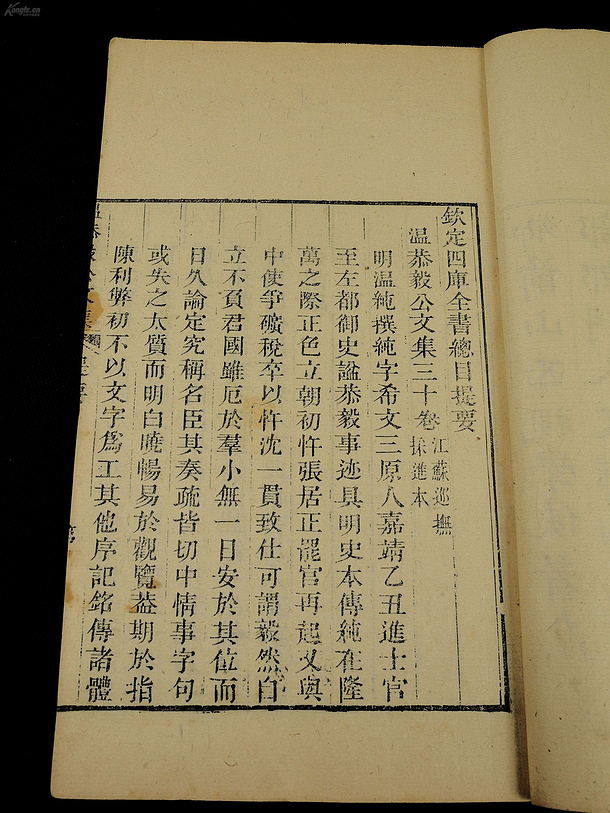 欽定四庫全書總目提要
溫恭毅公文集三十卷 江蘇巡撫採進本
明溫純撰純字希文三原人嘉靖乙丑進士官
至左都御史諡恭毅事迹具明史本傳純在隆
萬之際正色立朝初忤張居正罷官再起又與
中使爭礦稅卒以忤沈一貫致仕可謂毅然自
立不負君國雖厄於羣小無一日安於其位而
日久論定究稱名臣其奏疏皆切中情事字句
或失之太質而明白曉暢易於觀覽葢期於指
陳利弊初不以文字爲工其他序記銘傳諸體
Kongfz.cn